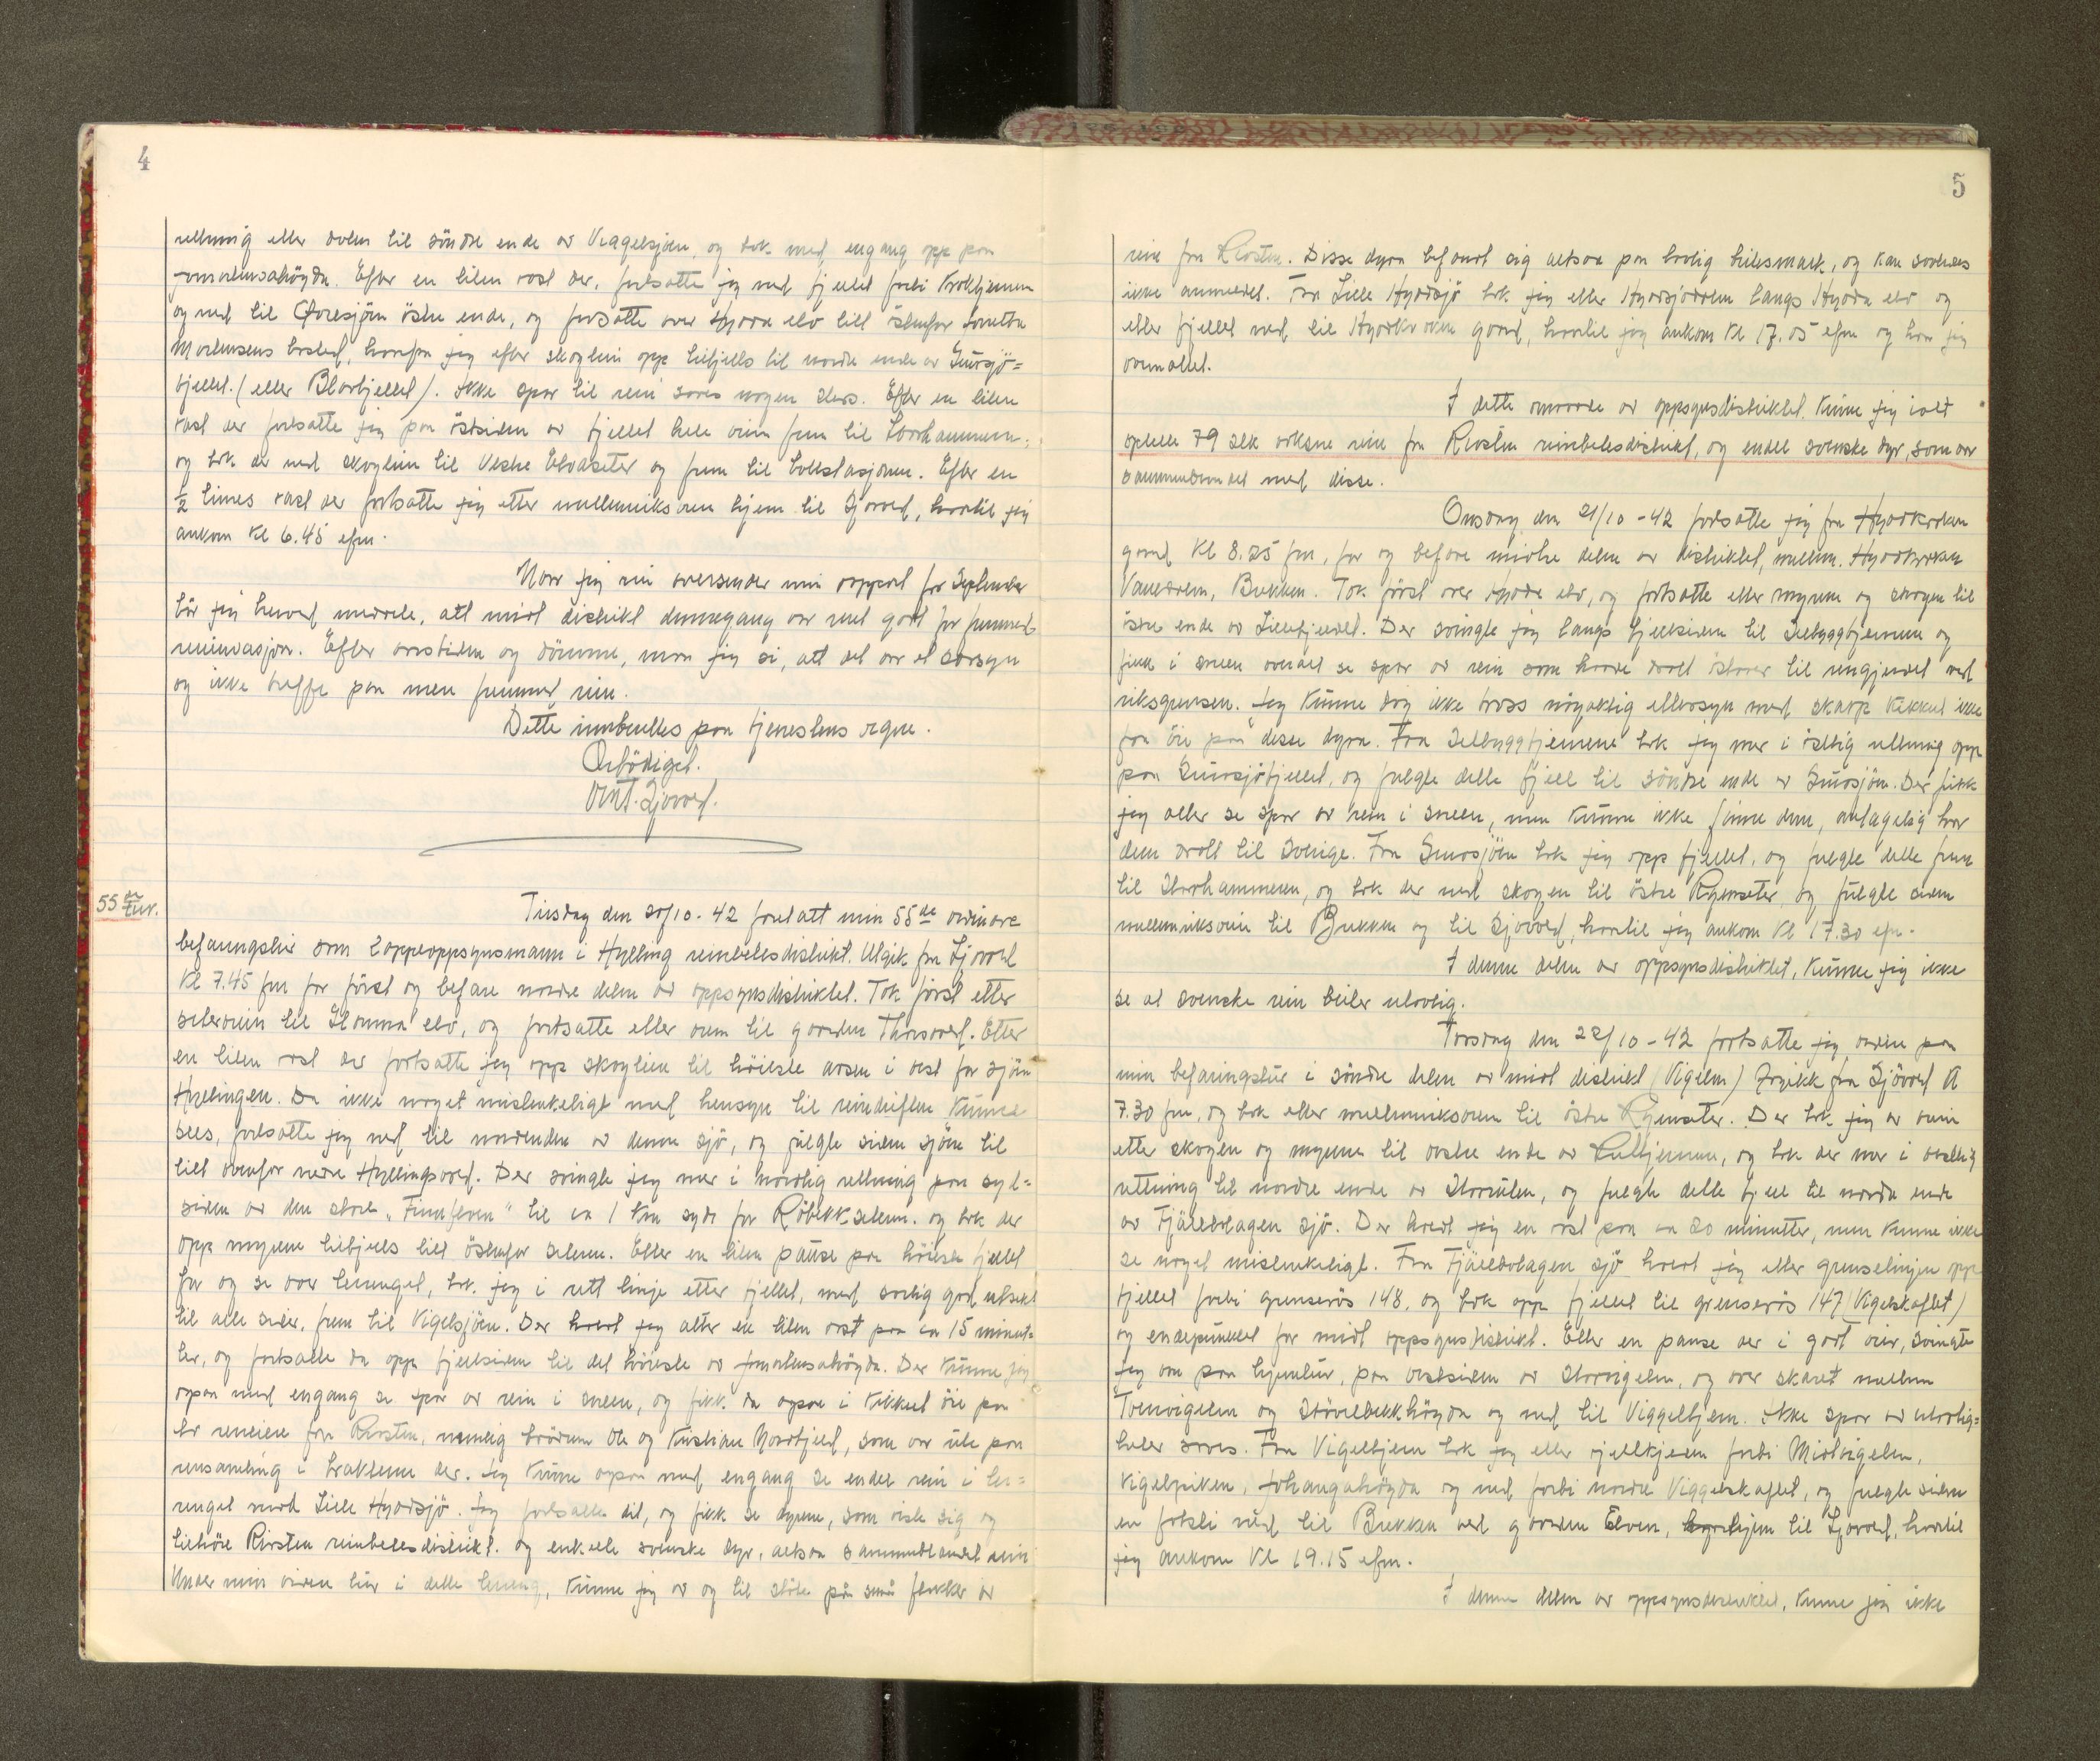 4
retning etter dalen til söndre ende av Viagelsjöen, og tok med engang opp paa
Jonsmensahögda. Efter en liten rast der, fortsatte jeg ned fjellet forbi Kroktjernene
og ned til Goresjöen östre ende, og fortsatte over Hyoda elv litt östenfor
Mortensens bosted, hvorfra jeg efter skoglien opp tilfjells til nordre ende av Gruvsjö=
fjellet. (eller Blaafjellet). Ikke spor til rein saaes nogen steds. Efter en liten
rast der fortsatte jeg paa östsiden av fjellet hele veien frem til Storhammeren,
og tok der ned skoglien til Vestre Elvaseter og frem til tollstasjonen. Efter en
½ times rast der fortsatte jeg etter mellemriksveien hjem til Sjövold, hvortil jeg
ankom Kl 6.45 efm.
Naar jeg nu oversender min rapport for September
bör jeg herved meddele, att mitt distrikt dennegang var vel godt for fremmed
reininvasjon. Efter aarstiden og dömme, maa jeg si, att det var et særsyn
og ikke treffe paa mere fremmed rein.
Dette innberettes paa tjenestens vegne.
Ærbödigst.
O.M.T. Sjövold.
55 de tur.
Tirsdag den 20/10-42 foretatt min 55de ordinære
befaringstur som lappeoppsynsmann i Hylling reinbeitesdistrikt. Utgik fra Sjövold
Kl 7.45 fm for först og befare nordre delen av oppsynsdistriktet. Tok först etter
seterveien til Glomma elv, og fortsatte etter veien til gaarden Thorsvold. Etter
en liten rast der fortsatte jeg opp skoglien til höieste aasen i vest for sjöen
Hyllingen. Da ikke noget mislenkeligt med hensyn til reindriften kunne
sees, fortsatte jeg ned til nordenden av denne sjö, og fulgte siden sjöen til
litt ovenfor nedre Hyllingsvold. Der svingte jeg mer i nordlig retning paa syd=
siden av den store "Finnfloen" til ca 1 km syd for Röbekkseteren. og tok der
opp myrene tilfjells litt östenfor seteren. Etter en liten pause paa höieste fjellet
for og se over terrenget, tok jeg i rett linje etter fjellet, med særlig god utsikt
til alle sider, frem til Vigelsjöen. Der hvilt jeg atter en liten rast paa ca 15 minut=
ter, og fortsatte da opp fjellsiden til det höieste av Jonsmensahögda. Der kunne jeg
ogsaa med engang se spor av rein i sneen, og fikk da ogsaa i kikkert öie paa
to reineiere fra Riasten, nemlig brödrene Ole og Kristian Nordfjeld, som var ute paa
reinsamling i traktene der. Jeg kunne ogsaa med engang se endel rein i ter=
renget nord Lille Hyddsjö. Jeg fortsatte dit, og fikk se dyrene, som viste sig og
tilhöre Riasten reinbeitesdistrikt. og enkelte svenske dyr, altsaa sammenblandet rein
Under min videre tur i dette terreng, kunne jeg av og til stöte på små flokker av
5
rein fra Riasten. Disse dyra befandt sig altsaa paa lovlig beitesmark, og kan saaledes
ikke anmeldes. Fra Lille Hyddsjö tok jeg etter Hyddsjödalen langs Hydda elv og
etter fjellet ned til Hyddkroken gaard, hvortil jeg ankom Kl 17.05 efm og hvor jeg
overnattet.
I dette omraade av oppsynsdistriktet kunne jeg ialt
optelle 79 stk voksne rein fra Riasten reinbeitesdistrikt, og endel svenske dyr, som var
sammenblandet med disse.
Onsdag den 21/10-42 fortsatte jeg fra Hyddkroken
gaard Kl 8.25 fm, for og befare midtre delen av distriktet, mellem Hyddkroken
Vaueldalen, Brekken. Tok först over Hydda elv, og fortsatte etter myrene og skogen til
östre ende av Lillefjellet. Der svingte jeg langs fjellsiden til Selbyggtjernene og
fikk i sneen overalt se spor av rein som hadde dratt östover til rengjerdet ved
riksgrensen. Jeg kunne dog ikke tross nöyaktig ettersyn med skarp kikkert ikke
faa öie paa disse dyra. Fra Selbyggtjernene tok jeg mer i östlig retning opp
paa Gruvsjöfjellet, og fulgte dette fjell til söndre ende av Gruvsjöen. Der fikk
jeg atter se spor av rein i sneen, men kunne ikke finne dem, antagelig har
dem dratt til Sverige. Fra Gruvsjöen tok jeg opp fjellet, og fulgte dette frem
til Storhammeren, og tok der ned skogen til östre Ryenseter, og fulgte siden
mellemriksveien til Brekken og til Sjövold, hvortil jeg ankom Kl 17.30 efm.
I denne delen av oppsynsdistriktet, kunne jeg ikke
se at svenske rein beiter ulovlig.
Torsdag den 22/10-42 fortsatte jeg videre paa
min befaringstur i söndre delen av mitt distrikt (Vigelen) Avgikk fra Sjövold Kl
7.30 fm, og tok etter mellemriksveien til östre Ryenseter. Der tok jeg av veien
etter skogen og myrene til vestre ende av Rutjernene, og tok der mer i vestlig
retning til nordre ende av Storvulen, og fulgte dette fjell til nordre ende
av Fjällvolagen sjö. Der hvilt jeg en rast paa ca 20 minutter, men kunne ikke
se noget mislenkeligt. Fra Fjällvolagen sjö hvert jeg etter grenselinjen opp
fjellet forbi grenserös 148, og tok opp fjellet til grenserös 147 (Vigelskaftet)
og endepunktet for mitt oppsynsdistrikt. Etter en pause der i godt vær, svingte
jeg om paa hjemtur, paa vestsiden av Storvigelen, og over skaret mellem
Tvervigelen og Störrelbekkhögda og ned til Viggeltjern. Ikke spor av ulovlig=
heter saaes. Fra Vigeltjern tok jeg etter fjellkjeden forbi Midtvigelen,
Vigelpiken, Johangahögda og ned forbi nordre Viggelskaftet, og fulgte siden
en fotsti ned til Brekken ved gaarden Elven, hjem til Sjövold, hvortil
jeg ankom Kl 19.15 efm.
I denne delen av oppsynsdistriktet, kunne jeg ikke